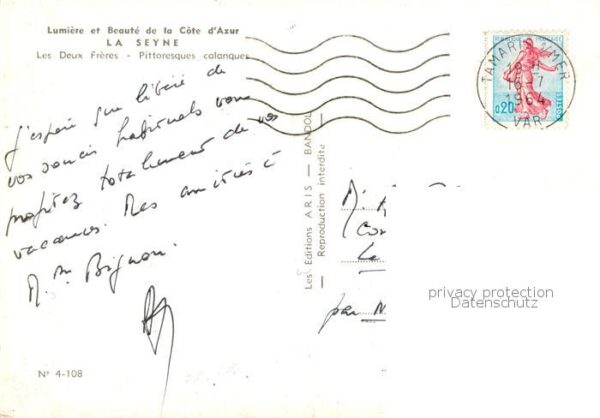 Lumière et Beauté de la Côte d'Azur
LA SEYNE
Les Deux Frères - Pittoresques calanques
J'espère que libéré de
vos soucis habituels vous
profitez totalement de vos
vacances. Mes amitiés à
M. Me Bignon.
Nº 4-108
Les Editions ARIS — BANDOL
Reproduction interdite
TAMARIS S/MER
16-7
1964
VAR
0,20
POSTES
M.
Le
par
privacy protection
Datenschutz